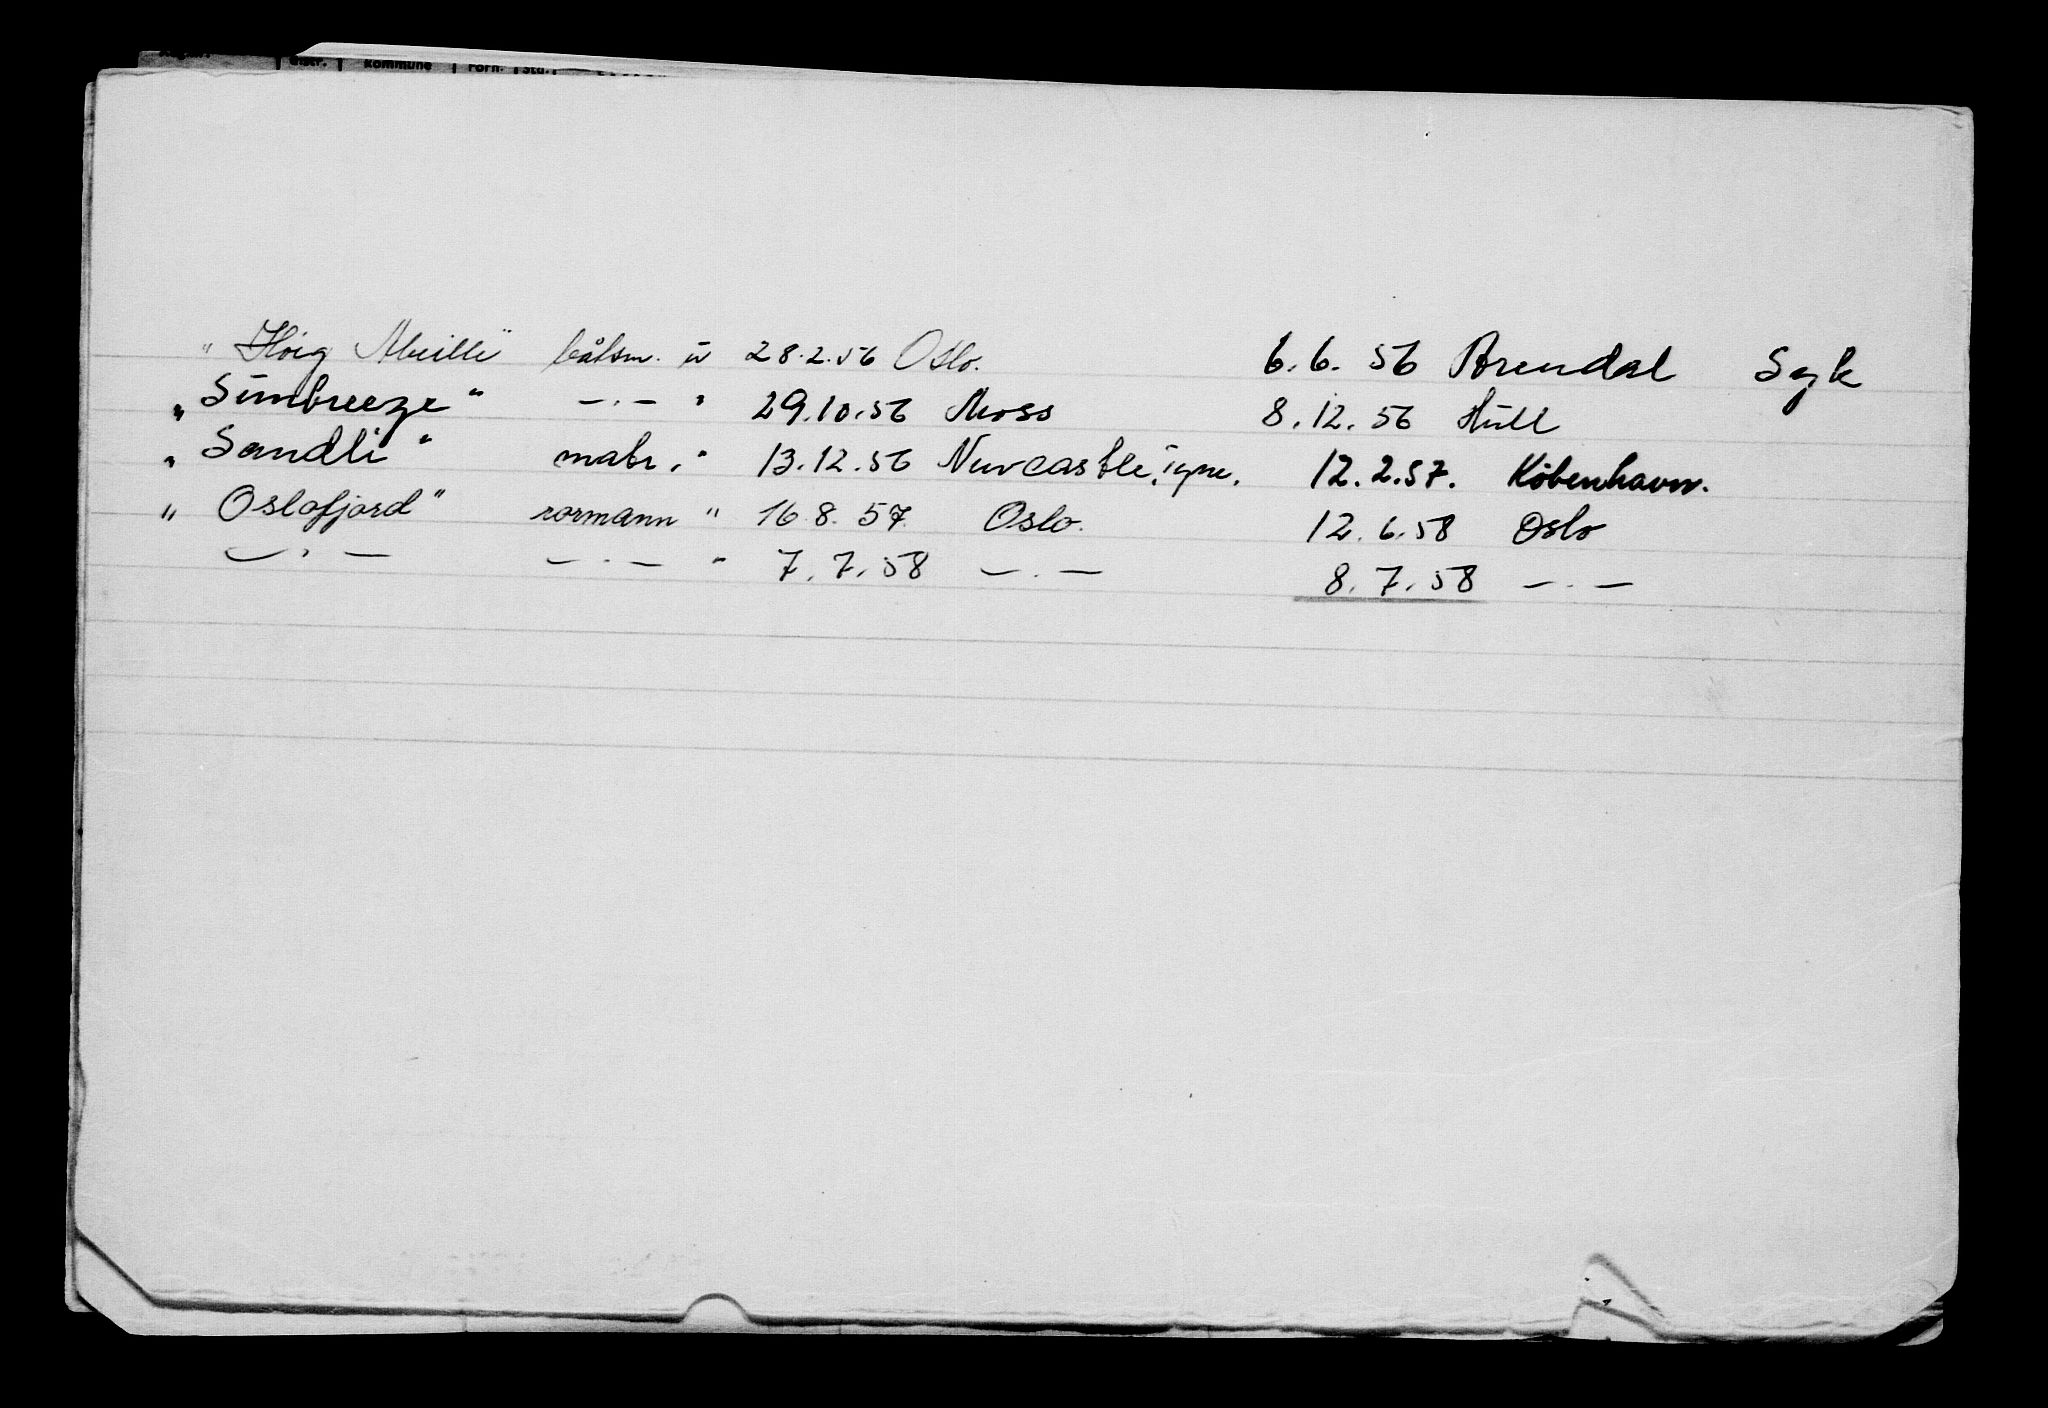 distr. kommune Forh. Std.
" Höig Abeille" båtsm. " 28.2.56 Oslo. 6.6.56 Arendal Syk
" Sunbreeze " —.— " 29.10.56 Moss 8.12.56 Hull
" Sandli " matr. " 13.12.56 Newcastle, Tyne. 12.2.57. København.
" Oslofjord " rormann " 16.8.57 Oslo. 12.6.58 Oslo
—.— —.— " 7.7.58 —.— 8.7.58 —.—